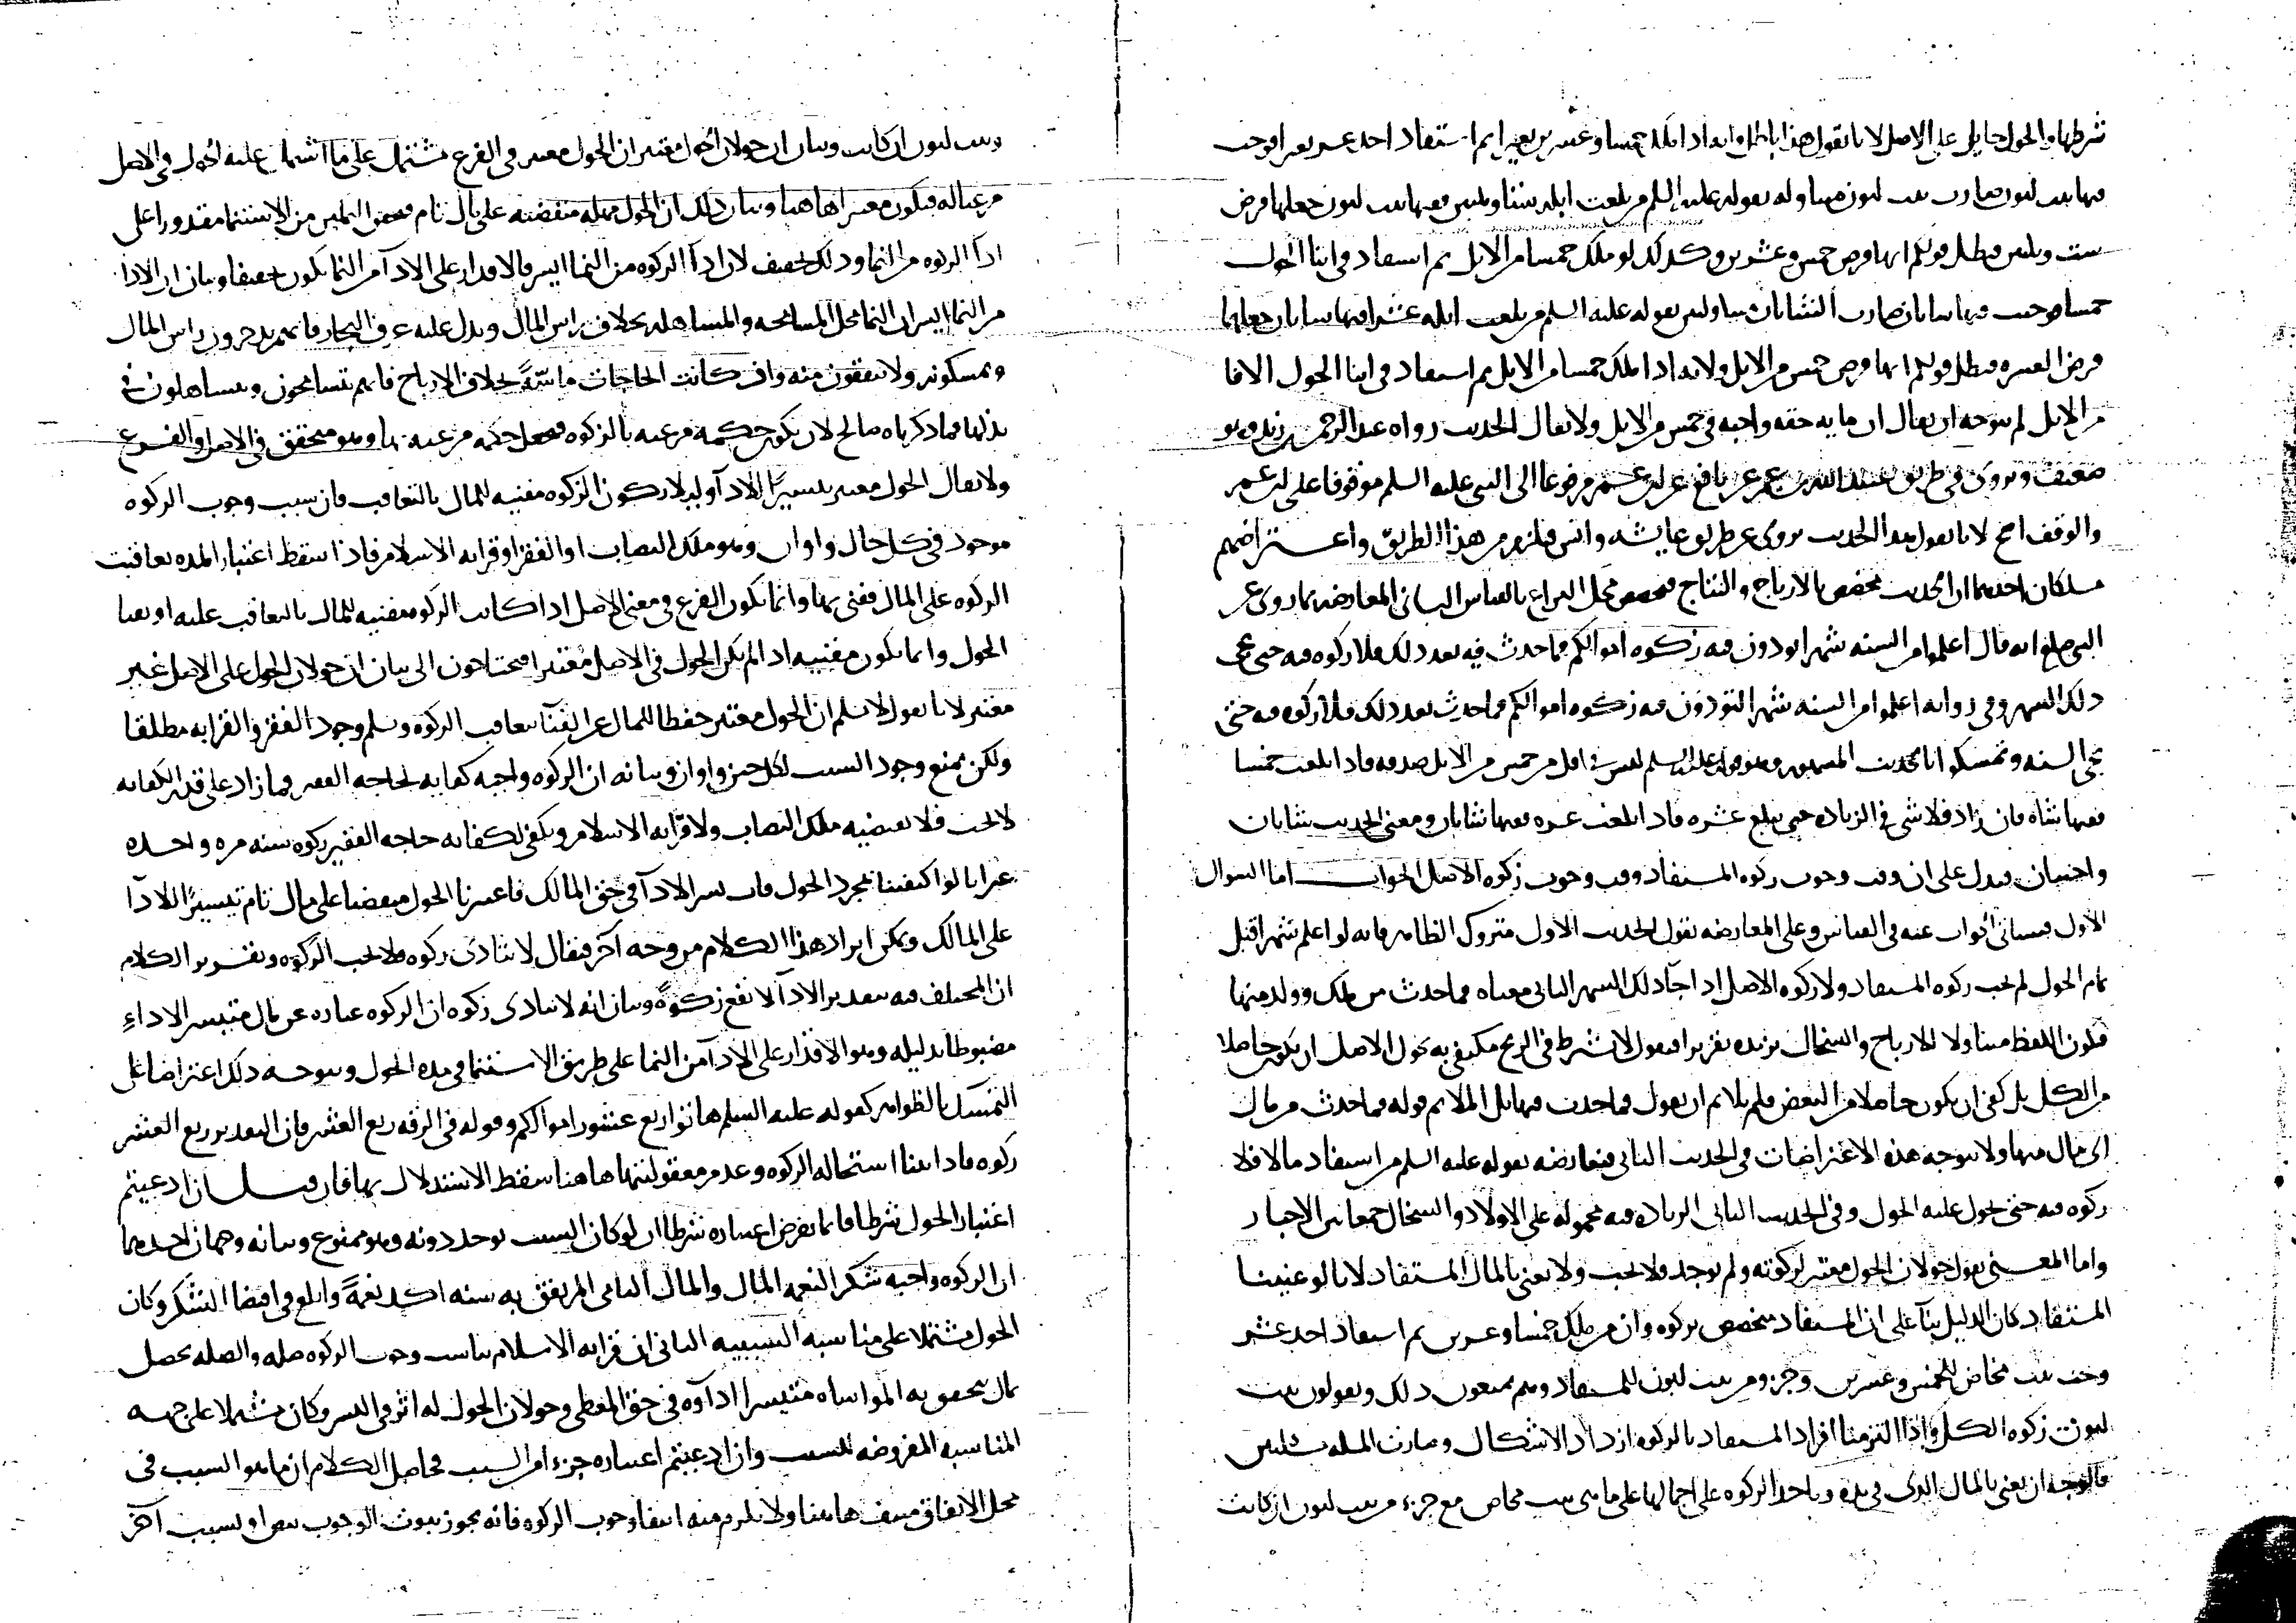 شرطها والحول حايل على الاصل لانا نقول هذا باطل وانه اذا ملك خمسا وعشرين بعيرا ثم استفاد احد عشر بعيرا فوجب
فيها بنت لبون صارت بنت لبون متناوله بقوله عليه السلم من بلغت ابله ستا وثلثين ففيها بنت لبون جعلها فرض
ست وثلثين فبطل قولكم انها فرض خمس وعشرين وكذلك لو ملك خمسا من الابل ثم استفاد في اثنا الحول
خمسا فوجب فيها شاتان صارت الشاتان متناولتين بقوله عليه السلم من بلغت ابله عشرا ففيها شاتان جعلهما
فرض العشره فبطل قولكم انها فرض خمس من الابل ولانه اذا ملك خمسا من الابل ثم استفاد في اثنا الحول الافا
من الابل لم يتوجه ان يقال ان مايه حقه واجبه في خمس من الابل ولا يقال الحديث رواه عبد الرحمن بن زيد وهو
ضعيف ويروى في طريق عبيد الله بن عمر عن نافع عن ابن عمر مرفوعا الى النبي عليه السلم موقوفا على ابن عمر
والوقف اصح لانا نقول هذا الحديث يروى عن طريق عايشه وانس فيلزم من هذا الطريق واعتراضهم
مسلكان احدهما ان الحديث مخصص بالارباح والنتاج فيخصص محل النزاع بالقياس الثاني المعارضه بما روى عن
النبي صلع انه قال اعلموا من السنه شهرا تودون فيه زكوه اموالكم فما حدث فيه بعد ذلك فلا زكوه فيه حتى يجي
ذلك الشهر وفي روايه اعلموا من السنه شهرا تتودون فيه زكوه اموالكم فما حدث بعد ذلك فلا زكوه فيه حتى
يجي السنه وتمسكوا بالحديث المشهور وهو قوله عليه السلم ليس في اقل من خمس من الابل صدقه فاذا بلغت خمسا
ففيها شاه فان زاد فلا شي في الزياده حتى يبلغ عشره فاذا بلغت عشره ففيها شاتان ومعنى الحديث شاتان
واجبتان فيدل على ان وقت وجوب زكوه المستفاد وقت وجوب زكوه الاصل الجواب اما السوال
الاول فسياتي الجواب عنه في القياس وعلى المعارضه نقول الحديث الاول متروك الظاهر فانه لو اعلم شهرا قبل
تمام الحول لم يجب زكوه المستفاد ولا زكوه الاصل اذا جا ذلك الشهر الثاني معناه فما حدث من ملك وولد منها
فلون اللفظ متناولا للارباح والسخال نزيده تقريرا فنقول لا شرط في الربح مكتفي به بحول الاصل ان يكون حاصلا
من الكل بل كفى ان يكون حاصلا من البعض فلم يلايم ان يقول فما حدث فيها بل الملايم قوله فما حدث من مال
الى مال منها ولا يتوجه هذه الاعتراضات في الحديث الثاني فيعارضه بقوله عليه السلم من استفاد مالا فلا
زكوه فيه حتى يحول عليه الحول وفي الحديث الثاني الزياده فيه محموله على الاولاد والسخال جمعا بين الاخبار
واما المعنى نقول حولان الحول معتبر لزكوته ولم يوجد فلا يجب ولا يعنى بالمال المستفاد لانا لو عنينا
المستفاد كان الدليل بنا على ان المستفاد مخصص بزكوه وان من ملك خمسا وعشرين ثم استفاد احد عشر
وجب بنت مخاض للخمس وعشرين وجزو من بنت لبون للمستفاد وهم يمنعون ذلك ويقولون بنت
لبون زكوه الكل واذا التزمنا افراد المستفاد بالزكوه ازداد الاشكال وصارت المسله مسلتين
فالوجه ان يعنى بالمال الذي في يده وياخذ الزكوه على اجمالها على ما هي بنت مخاض مع جزء من بنت لبون ان كانت
وبنت لبون ان كانت وبيان ان حولان الحول معتبر ان الحول معتبر في الفرع مشتمل على ما اشتمل عليه الحول في الاصل
مرعيا له فيكون معتبرا هاهنا وبيان ذلك ان الحول مهله منقضيه على مال تام فيحصل التمكن من الاستنما مقدورا على
ادآ الزكوه من النما وذلك تخفيف لان ادآ الزكوه من النما ايسر فالاقدار على الادآ من النما يكون تخفيفا وبيان ان الادآ
من النما ايسر ان النما محل المسامحه والمساهله بخلاف راس المال ويدل عليه عرف التجار فانهم يدخرون راس المال
ويمسكونه ولا ينفقون منه وان كانت الحاجات ماسّةً بخلاف الارباح فانهم يتسامحون ويتساهلون في
بذلها فما ذكرناه صالح لان يكون حكمه مرعيه بالزكوه فيجعل حكمه مرعيه بها وهو متحقق في الاصل والفرع
ولا يقال الحول معتبر تيسيرًا للادآ وليلا يكون الزكوه مفنيه للمال بالتعاقب فان سبب وجوب الزكوه
موجود في كل حال واوان وهو ملك النصاب او الفقر او قرابه الاسلام فاذا سقط اعتبار المده تعاقبت
الزكوه على المال ففني بها وانما يكون الفرع في معنى الاصل اذا كانت الزكوه مفنيه للمال بالتعاقب عليه او بفنا
الحول وانما يكون مفنيه اذا لم يكن الحول في الاصل معتبرا فتحتاجون الى بيان ان حولان الحول على الاصل غير
معتبر لانا نقول لا نسلم ان الحول معتبر حفظا للمال عن الفنآ بتعاقب الزكوه ونسلم وجود الفقر والقرابه مطلقا
ولكن نمنع وجود السبب لكل حين واوان وبيانه ان الزكوه واجبه كفايه لحاجه الفقير فما زاد على قدر الكفايه
لا يجب فلا يقتضيه ملك النصاب ولا قرابه الاسلام ويكفي لكفايه حاجه الفقير زكوه سنه مره واحده
غير انا لو اكتفينا بمجرد الحول فات يسر الادآ في حق المالك فاعتبرنا الحول منقضيا على مال تام تيسيرًا للادآ
على المالك ويمكن ايراد هذا الكلام من وجه آخر فيقال لا تتادى زكوه فلا يجب الزكوه وتقرير الكلام
ان المختلف فيه بتقدير الادآ لا يقع زكوةً وبيان انه لا يتادى زكوه ان الزكوه عباره عن مال متيسر الاداء
مضبوطا بدليله وهو الاقدار على الادآ من النما على طريق الاستنما في مده الحول ويتوجه ذلك اعتراضا على
التمسك بالظواهر كقوله عليه السلم هاتوا ربع عشور اموالكم وقوله في الرقه ربع العشر فان التقدير ربع العشر
زكوه فاذا بينا استحاله الزكوه وعدم معقوليتها هاهنا سقط الاستدلال بها فان قيل ان ادعيتم
اعتبار الحول شرطا فانما يفرض اعتباره شرطا ان لو كان السبب يوجد دونه وهو ممنوع وبيانه وجهان احدهما
ان الزكوه واجبه شكر النعمه المال والمال النامي المرتفق به سنه اكد نعمةً وابلغ في اقتضا الشكر وكان
الحول مشتملا على مناسبه السببيه الثاني ان قرابه الاسلام تناسب وجوب الزكوه صله والصله تحصل
بمال يتحقق به المواساه متيسرا اداؤه في حق المعطي وحولان الحول له اثر في اليسر وكان مشتملا على جهه
المناسبه المفروضه للسبب وان ادعيتم اعتباره جزءا من السبب فحاصل الكلام ان ما هو السبب في
محل الاتفاق منتف هاهنا ولا يلزم منه انتفا وجوب الزكوه فانه يجوز ثبوت الوجوب بنص او لسبب آخر